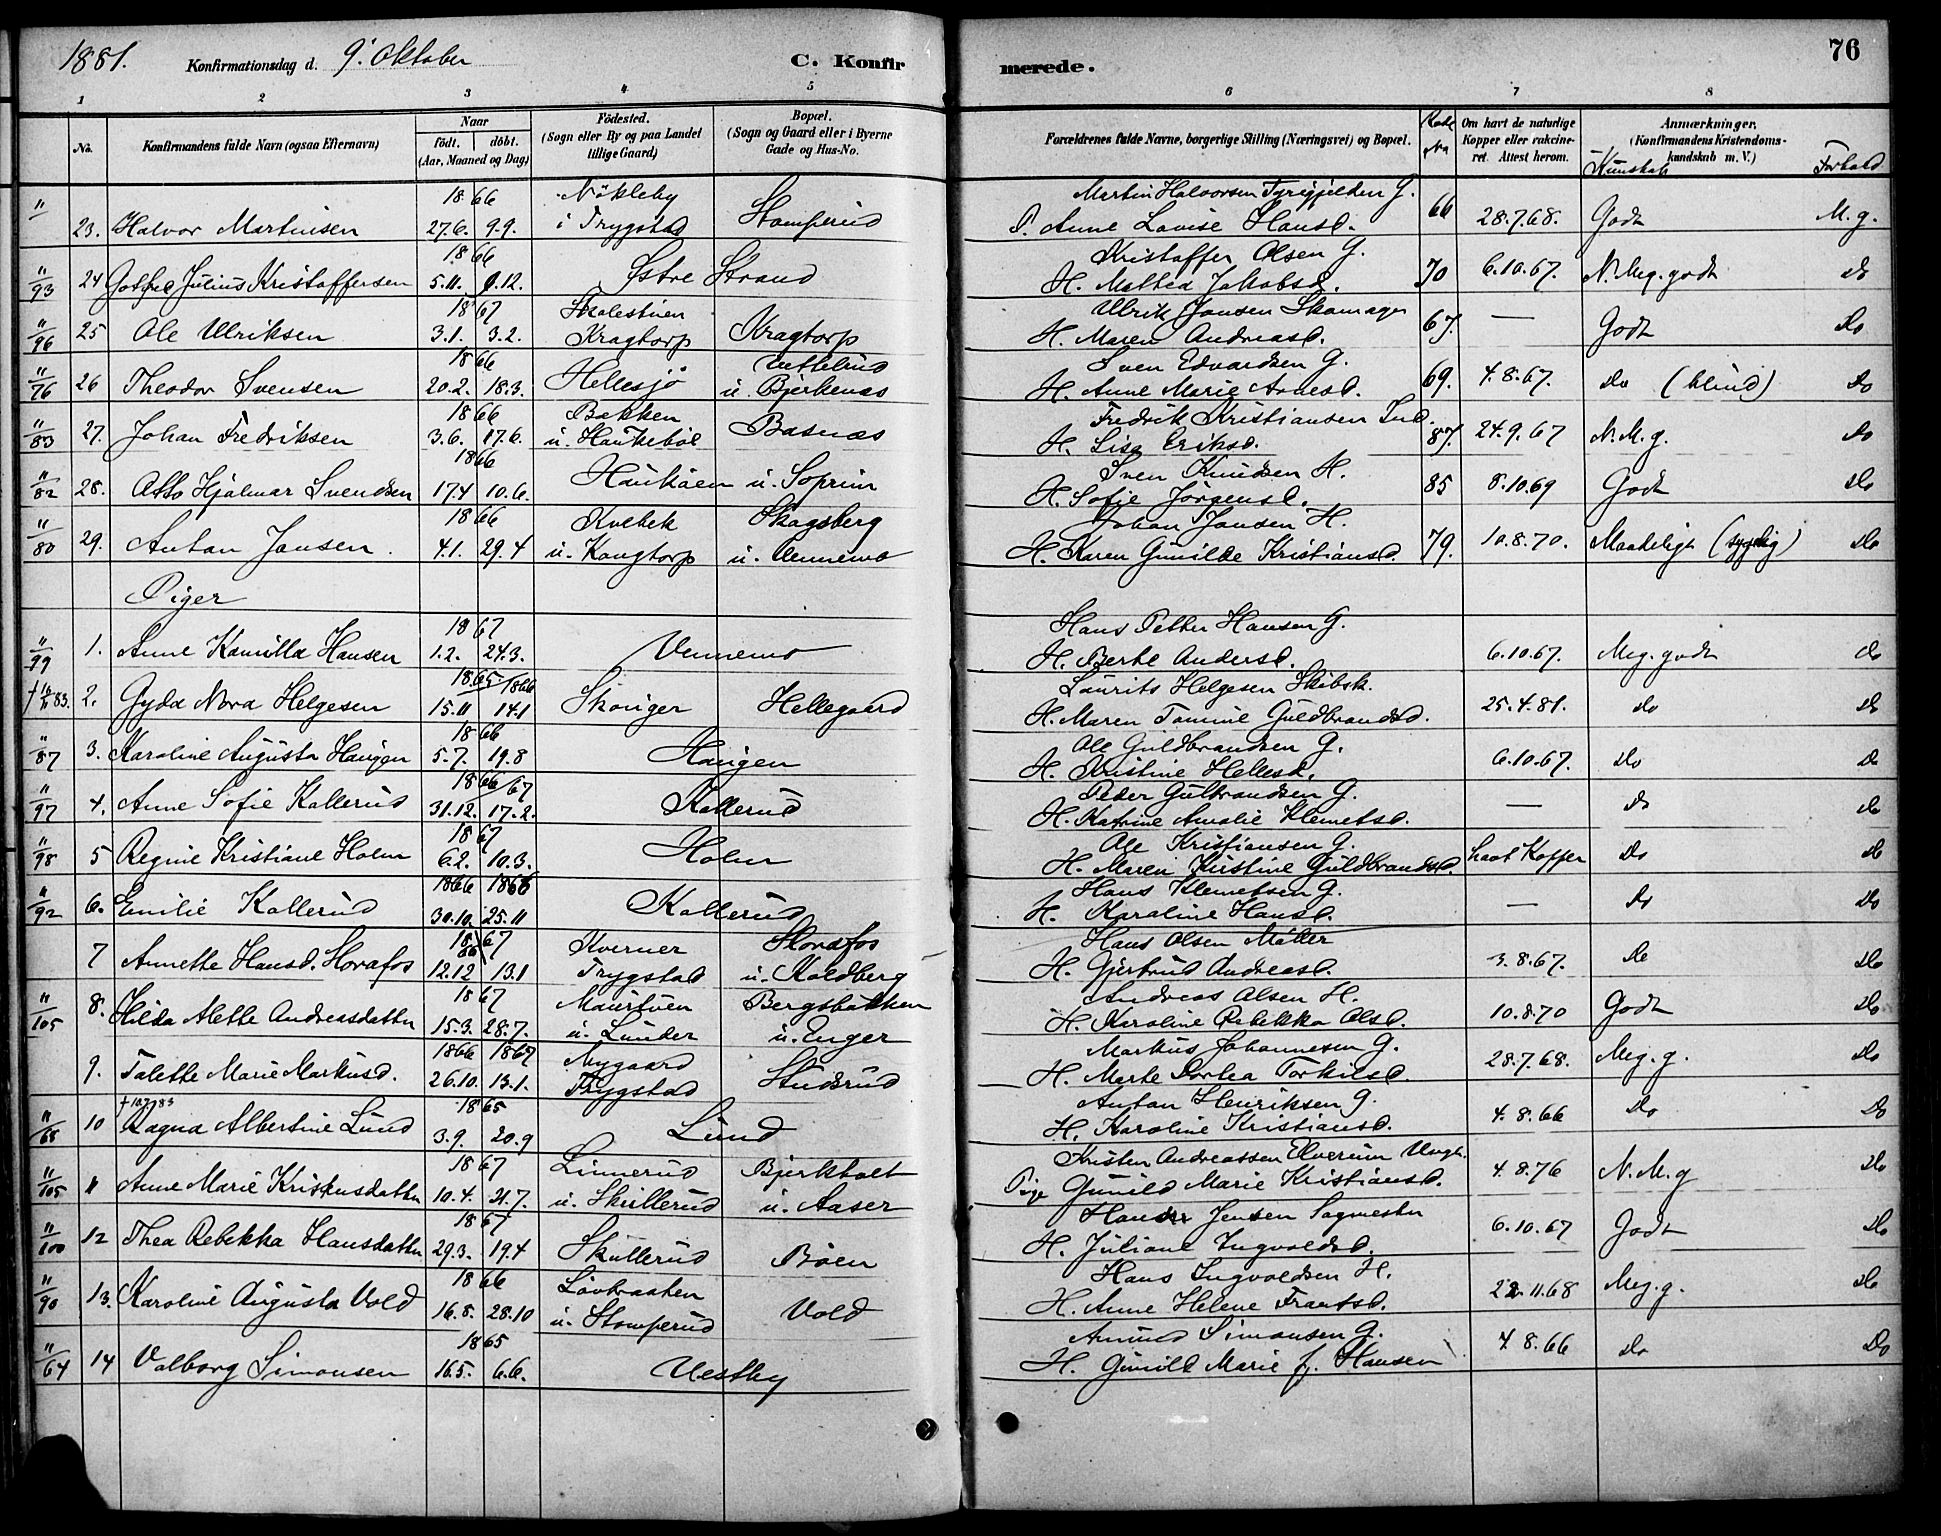 1881. Konfirmationsdag d. 9' Oktober C. Konfirmerede. 76
1 2 3 4 5 6 7 8
No. Konfirmandens fulde Navn (ogsaa Efternavn) Naar födt. döbt. (Aar, Maaned og Dag) Födested. (Sogn eller By og paa Landet tillige Gaard) Bopæl. (Sogn og Gaard eller i Byerne Gade og Hus-No. Forældrenes fulde Navne, borgerlige Stilling (Næringsvei) og Bopæl. Om havt de naturlige Kopper eller vakcineret. Attest herom. Anmærkninger. (Konfirmandens Kristendomskundskab m. V.) Kunskab Forhold
" 1866 Nökleby Martin Halvorsen G.
23. Halvor Martinsen 27.6. 9.9. i Trygstad Stomperud P. Anne Lovise Hansd. 66 28.7.68. Godt M.g.
" 1866 Kristoffer Olsen G.
93 24 Julius Kristoffersen 5.11. 9.12. Østre Strand H. Mathea Jakobsd. 70 6.10.67. N. Meg. godt Do
" 1867 Ulrik Jansen Skomager
96 25 Ole Ulriksen 3.1. 3.2. Kragtorp Kragtorp H. Maren Andreasd. 67. — Godt Do
" 1866 Sven Edvardsen G.
76 26 Theodor Svensen 20.2. 18.3. Hellesjö u. Bjerkenæs H. Anne Marie Arnesd. 69. 4.8.67. Do (blind) Do
" 1866 Bakken Fredrik Kristiansen Ind.
83 27. Johan Fredriksen 3.6. 17.6. u. Haukeböl Basnæs H. Lisa Eriksd. 87. 24.9.67 N.M.g. Do
" 1866 Sven Knudsen H.
82 28. Otto Hjalmar Svendsen 17.4 10.6. u. Soprim H. Sofie Jörgensd. 85 8.10.69 Godt Do
" 1866 Kvebek Skogsberg Johan Jansen H.
80 29. Anton Jansen. 4.1. 29.4 u. Kragtorp u. Vennemo H. Karen Gunilde Kristiansd. 79. 10.8.70. Maadeligt (sygelig) Do
Piger
" 1867 Hans Petter Hansen G.
99 1. Anne Kamilla Hansen 1.2. 24.3. Vennemo H. Berte Andersd. 6.10.67. Meg. godt Do
1865 1866 Laurits Helgesen Skibsk.
83. 2. Gyda Nora Helgesen 15.11 14.1 Skönger Hellegaard H. Maren Tomine Guldbrandsd. 25.4.81. do Do
" 1866 Ole Guldbrandsen G.
87 3. Karoline Augusta Haugen 5.7. 19.8 Haugen H. Kristine Hellesd. 6.10.67. Do Do
" 1866 67 Peder Gulbrandsen G.
97 4. Anne Sofie Kallerud 31.12. 17.2. Kallerud H. Katrine Amalie Klemetsd. — Do Do
" 1867 Ole Kristiansen G.
98 5 Regine Kristiane Holm 6.2. 10.3. Holm H. Maren Kirstine Guldbrandsd. havt Kopper Do Do
" 1866 1866 Hans Klemetsen G.
92 6. Emilie Kallerud 30.10. 25.11 Kallerud H. Karoline Hansd. — Do Do
1867 66 Kverner Storafos Hans Olsen Möller
7 Annette Hansd. Storafos 12.12 13.1 Trygstad u. Koldberg H. Gjertrud Andreasd. 3.8.67. Do Do
" 1867 Maurtuen Bergsbakken Andreas Olsen H.
105 8. Hilda Alette Andreasdatter 15.3. 28.7. u. Lunder u. Enger H. Karoline Rebekka Olsd. 10.8.70 Godt Do
1866 1867 Nygaard Markus Johannesen G.
9. Talette Marie Markusd. 26.10. 13.1. Trygstad Studsrud H. Marte Dortea Torkilsd. 28.7.68. Meg. g. Do
" 1865 Anton Henriksen G.
68 10 Ragna Albertine Lund 3.9. 20.9 Lund H. Karoline Kristiansd. 4.8.66 Do Do
" 1867 Linnerud Bjerkholt Kristen Andreassen Elverum Ungk.
105 11 Anne Marie Kristensdatter 10.4. 21.7. u. Skullerud u. Aaser Pige Gunild Marie Kristiansd. 4.8.76 N.M.g Do
" 1867 Hans Jensen Sagmester
100 12 Thea Rebekka Hansdatter 29.3. 19.4 Skullerud Böen H. Juliane Ingvoldsd. 6.10.67 Godt Do
" 1866 Lövbraaten Hans Ingvoldsen H.
90 13. Karoline Augusta Vold 16.8. 28.10 u. Stomperud Vold H. Anne Helene Frantsd. 22.11.68 Meg. g. Do
" 1865 Amund Simonsen G.
64 14 Valborg Simonsen 16.5. 6.6. Vestby H. Gunild Marie f. Hansen 4.8.66 Do Do